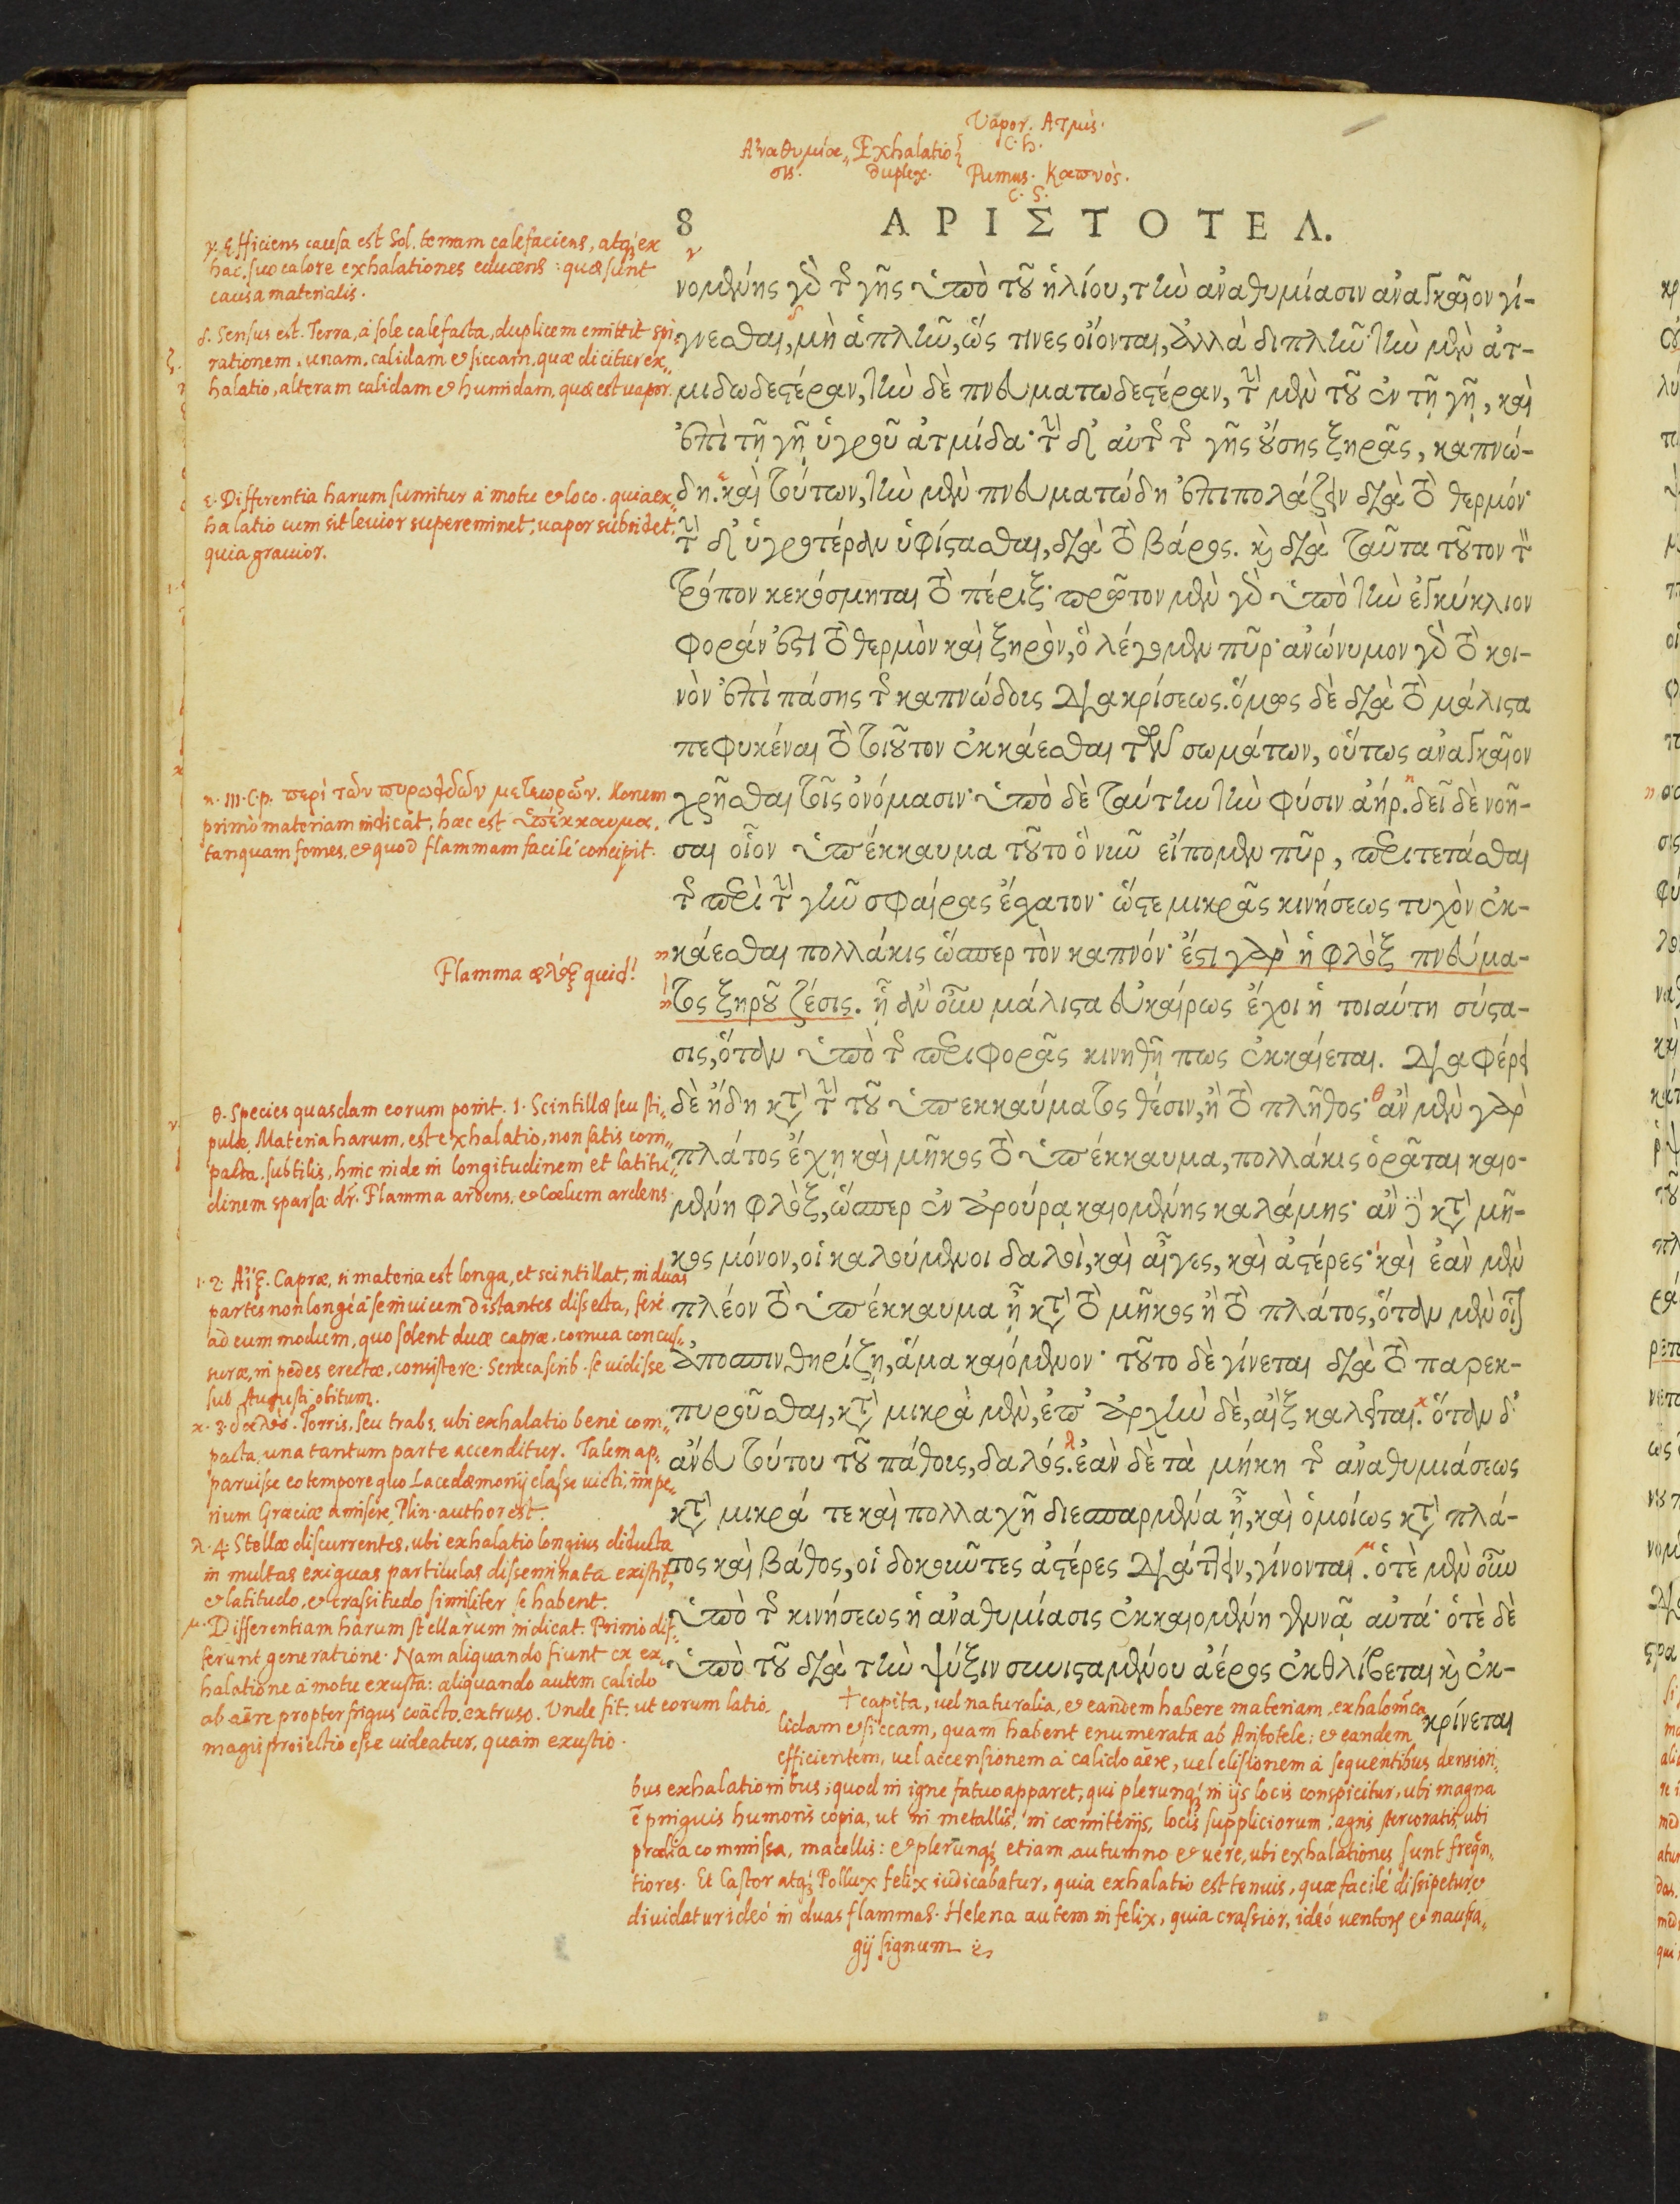 Vapor. Ατμὶς.
c. h.
Αναθυμία„ Exhalatio
σις. duplex. Fumus. Καπνὸς.
c. s.
8 ΑΡΙΣΤΟΤΕΛ.
γ. Efficiens causa est Sol. terram calefaciens, atq; ex
hac. suo calore exhalationes educens: quæ sunt
causa materialis.
δ. Sensus est. Terra, à sole calefacta, duplicem emittit spi„
rationem. unam. calidam et siccam. quæ dicitur ex„
halatio, alteram calidam et humidam. quæ est vapor.
ε. Differentia harum sumitur à motu et loco. quia ex„
halatio cum sit levior supereminet; vapor subsidet.
quia gravior.
η. III. C.p. περὶ τῶν πυρωειδῶν μετεωρῶν. Horum
primò materiam indicat, hæc est ὑπέκκαυμα.
tanquam fomes, et quod flammam facilè concipit.
Flamma φλόξ quid?
θ. Species quasdam eorum ponit. 1. Scintillæ seu sti„
pulæ. Materia harum, est exhalatio, non satis com„
pacta. subtilis, hinc inde in longitudinem et latitu„
dinem sparsa. dr. Flamma ardens. et Cœlum ardens.
ι. 2. Αἴξ. Capræ, si materia est longa, et scintillat, in duas
partes non longè à se invicem distantes dissecta, ferè
ad eum modum, quo solent duæ capræ. cornua concus„
suræ, in pedes erectæ, consistere. Seneca scrib. se vidisse
sub Augusti obitum.
κ. 3. δαλὸς. Torris, seu trabs, ubi exhalatio benè com„
pacta, una tantum parte accenditur. Talem ap„
paruisse eo tempore quo Lacedæmonij classe victi, impe„
rium Græciæ amisere, Plin. author est.
λ. 4. Stellæ discurrentes, ubi exhalatio longius diducta
in multas exiguas particulas disseminata existit,
et latitudo, et crassitudo similiter se habent.
μ. Differentiam harum stellarum indicat. Primò dif„
ferunt generatione. Nam aliquando fiunt ex ex„
halatione à motu exusta: aliquando autem calido
ab aëre propter frigus coacto. extruso. Unde fit. ut eorum latio.
magis proiectio esse videatur, quàm exustio.
νομένης γὸ τῆς γῆς ὑπὸ τοῦ ἡλίου, τὴν ἀναθυμίασιν ἀναγκαῖον γί-
γνεσθαι, μὴ ἁπλῆν, ὥς τινες οἴονται, ἀλλὰ διπλῆν· τὴν μὲν ἀτ-
μιδωδεστέραν, τὴν δὲ πνευματωδεστέραν, τὴν μὲν τοῦ ἐν τῇ γῇ, καὶ
ἐπὶ τῇ γῇ ὑγροῦ ἀτμίδα· τὴν δ᾽ αὐτῆς τῆς γῆς οὔσης ξηρᾶς, καπνώ-
δη. καὶ τούτων, τὴν μὲν πνευματώδη ἐπιπολάζειν διὰ τὸ θερμόν·
τὴν δ᾽ ὑγροτέραν ὑφίστασθαι, διὰ τὸ βάρος. καὶ διὰ ταῦτα τοῦτον τὸν
τρόπον κεκόσμηται τὸ πέριξ· πρῶτον μὲν γὸ ὑπὸ τὴν ἐγκύκλιον
φοράν ἐστι τὸ θερμὸν καὶ ξηρὸν, ὃ λέγομεν πῦρ· ἀνώνυμον γὸ τὸ κοι-
νὸν ἐπὶ πάσης τῆς καπνώδους διακρίσεως. ὅμως δὲ διὰ τὸ μάλιστα
πεφυκέναι τὸ τοιοῦτον ἐκκάεσθαι τῶν σωμάτων, οὕτως ἀναγκαῖον
χρῆσθαι τοῖς ὀνόμασιν· ὑπὸ δὲ ταύτην τὴν φύσιν ἀήρ. δεῖ δὲ νοῆ-
σαι οἷον ὑπέκκαυμα τοῦτο ὃ νῦν εἴπομεν πῦρ, περιτετάσθαι
τῆς περὶ τὴν γῆν σφαίρας ἔσχατον· ὥστε μικρᾶς κινήσεως τυχὸν ἐκ-
κάεσθαι πολλάκις ὥσπερ τὸν καπνόν· ἔστι γὰρ ἡ φλὸξ πνεύμα-
τος ξηροῦ ζέσις. ᾗ ἂν οὖν μάλιστα εὐκαίρως ἔχοι ἡ τοιαύτη σύστα-
σις, ὅταν ὑπὸ τῆς περιφορᾶς κινηθῇ πως ἐκκαίεται. διαφέρει
δὲ ἤδη κατὰ τὴν τοῦ ὑπεκκαύματος θέσιν, ἢ τὸ πλῆθος· ἂν μὲν γὰρ
πλάτος ἔχῃ καὶ μῆκος τὸ ὑπέκκαυμα, πολλάκις ὁρᾶται καιο-
μένη φλὸξ, ὥσπερ ἐν ἀρούρᾳ καιομένης καλάμης· ἂν δὲ κατὰ μῆ-
κος μόνον, οἱ καλούμενοι δαλοὶ, καὶ αἶγες, καὶ ἀστέρες· καὶ ἐὰν μὲν
πλέον τὸ ὑπέκκαυμα ᾖ κατὰ τὸ μῆκος ἢ τὸ πλάτος, ὅταν μὲν οἷον
ἀποσπινθηρίζῃ, ἅμα καιόμενον· τοῦτο δὲ γίνεται διὰ τὸ παρεκ-
πυροῦσθαι, κατὰ μικρὰ μὲν, ἐπ᾽ ἀρχὴν δὲ, αἲξ καλεῖται. ὅταν δ᾽
ἄνευ τούτου τοῦ πάθους, δαλός. ἐὰν δὲ τὰ μήκη τῆς ἀναθυμιάσεως
κατὰ μικρά τε καὶ πολλαχῆ διεσπαρμένα ᾖ, καὶ ὁμοίως κατὰ πλά-
τος καὶ βάθος, οἱ δοκοῦντες ἀστέρες διᾴττειν, γίνονται. ὁτὲ μὲν οὖν
ὑπὸ τῆς κινήσεως ἡ ἀναθυμίασις ἐκκαιομένη γεννᾷ αὐτά· ὁτὲ δὲ
ὑπὸ τοῦ διὰ τὴν ψύξιν συνισταμένου ἀέρος ἐκθλίβεται καὶ ἐκ-
κρίνεται
† capita, vel naturalia, et eandem habere materiam, exhalonem ca„
lidam et siccam, quam habent enumerata ab Aristotele: et eandem
efficientem, vel accensionem à calido aëre, vel elisionem à sequentibus densiori„
bus exhalationibus; quod in igne fatuo apparet, qui plerunq; in ijs locis conspicitur, ubi magna
ē pinguis humoris copia, ut in metallis, in cœmiterijs, locis suppliciorum, agris stercoratis, ubi
prælia commissa, macellis: et plerunq; etiam autumno et vere, ubi exhalationes sunt freqn„
tiores. Et Castor atq; Pollux felix iudicabatur, quia exhalatio est tenuis, quæ facilè dissipetur et
dividatur ideò in duas flammas. Helena autem infelix, quia crassior, ideò ventorum et naufra„
gij signum